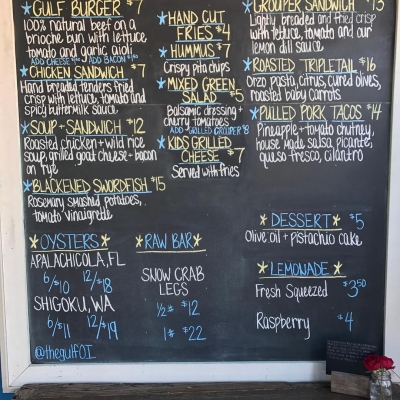 *GULF BURGER $7
100% natural beef on a
brioche bun with lettuce,
tomato and garlic aioli
ADD CHEESE $1.50 ADD BACON $1.50
*CHICKEN SANDWICH $7
Hand breaded tenders fried
crisp with lettuce, tomato and
spicy buttermilk sauce
*SOUP + SANDWICH $12
Roasted chicken + wild rice
soup, grilled goat cheese + bacon
on rye
*BLACKENED SWORDFISH $15
Rosemary smashed potatoes,
tomato vinaigrette
*OYSTERS*
APALACHICOLA, FL
6/$10 12/$18
SHIGOKU, WA
6/$11 12/$19
@thegulfOI
*HAND CUT
FRIES $4
*HUMMUS $7
Crispy pita chips
*MIXED GREEN
SALAD $5
Balsamic dressing +
cherry tomatoes
ADD GRILLED GROUPER $8
*KIDS GRILLED
CHEESE $7
Served with fries
*RAW BAR*
SNOW CRAB
LEGS
1/2# $12
1# $22
*GROUPER SANDWICH $13
Lightly breaded and fried crisp
with lettuce, tomato and our
lemon dill sauce
*ROASTED TRIPLETAIL $16
Orzo pasta, citrus, cured olives,
roasted baby carrots
*PULLED PORK TACOS $14
Pineapple + tomato chutney,
house made salsa picante,
queso fresco, cilantro
*DESSERT* $5
Olive oil + pistachio cake
*LEMONADE*
Fresh Squeezed $3.50
Raspberry $4